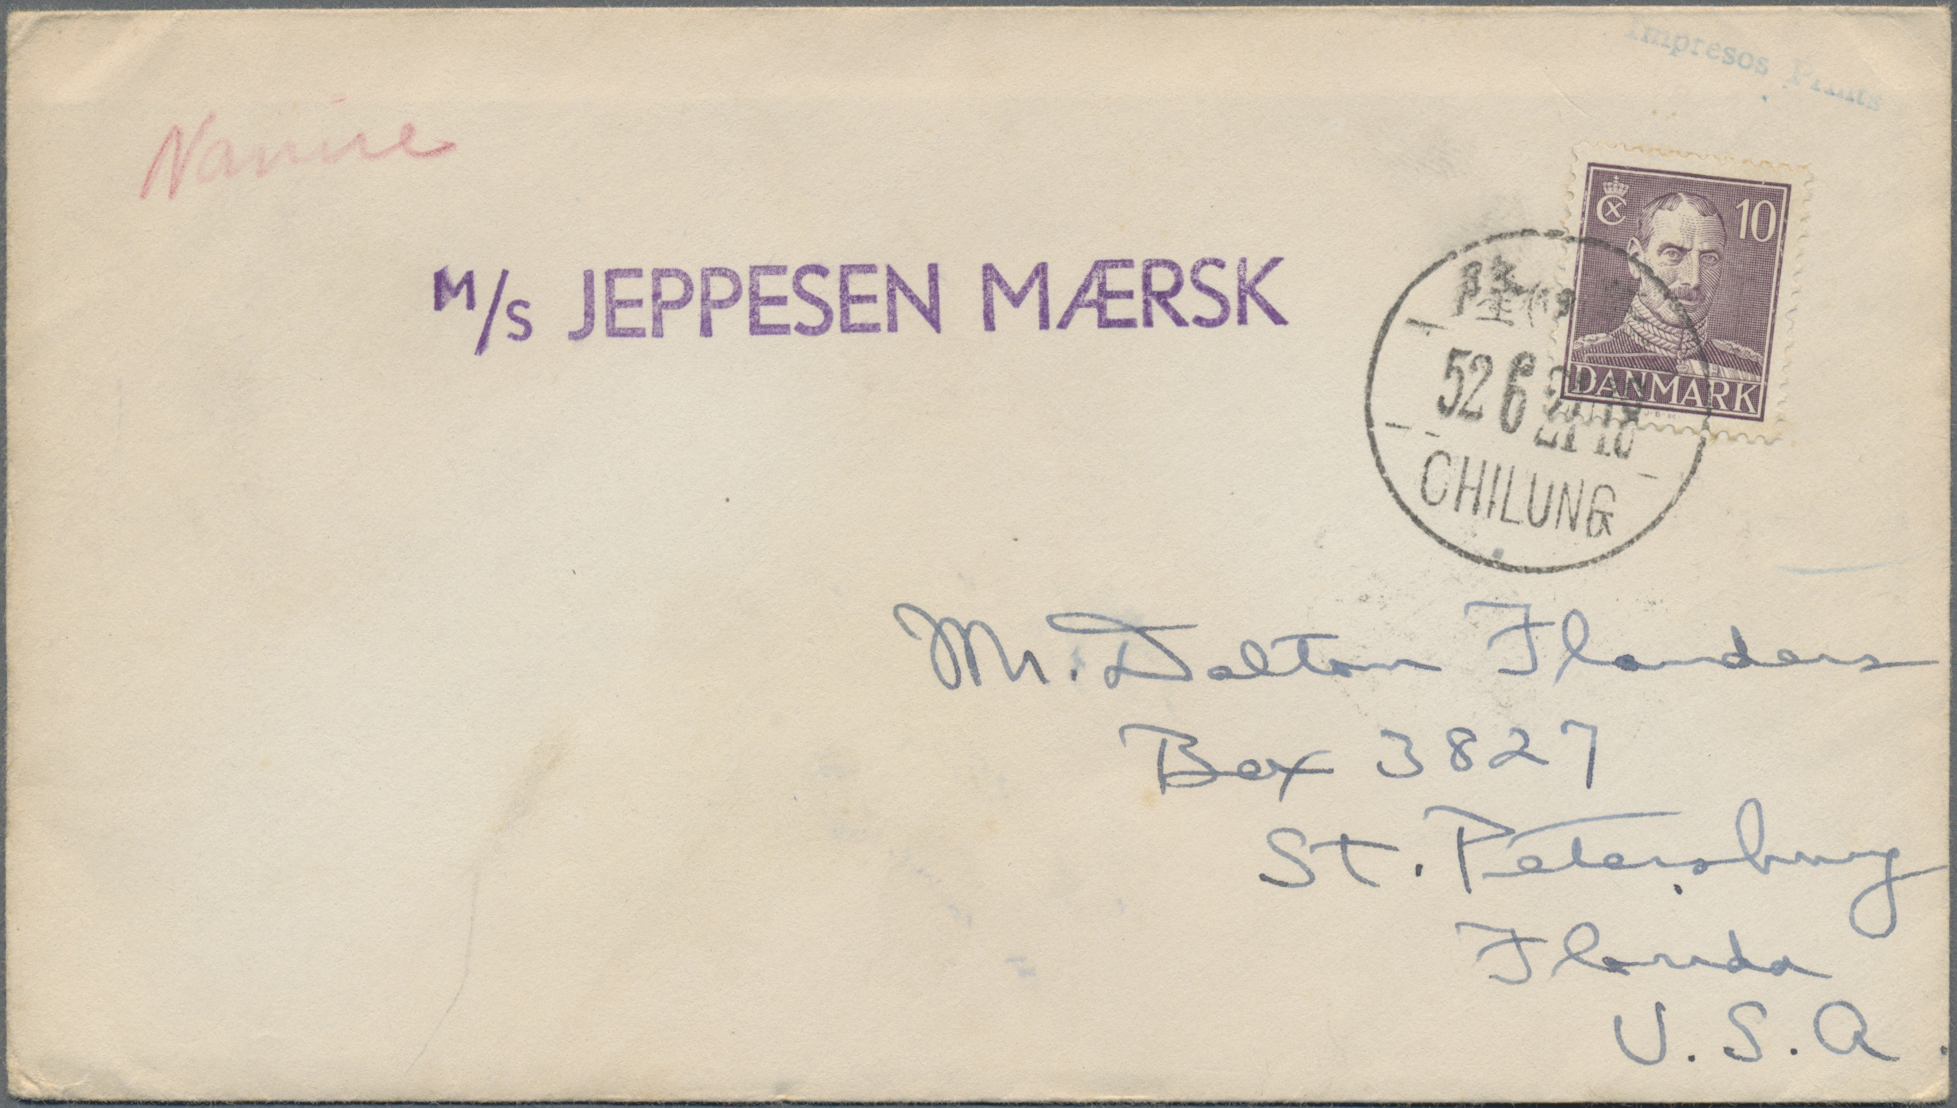 Impresos Prints
Navire
M/S JEPPESEN MÆRSK
10
DANMARK
52 6 21 18
CHILUNG
Mr. Dalton Flanders
Box 3827
St. Petersburg
Florida
U.S.A.